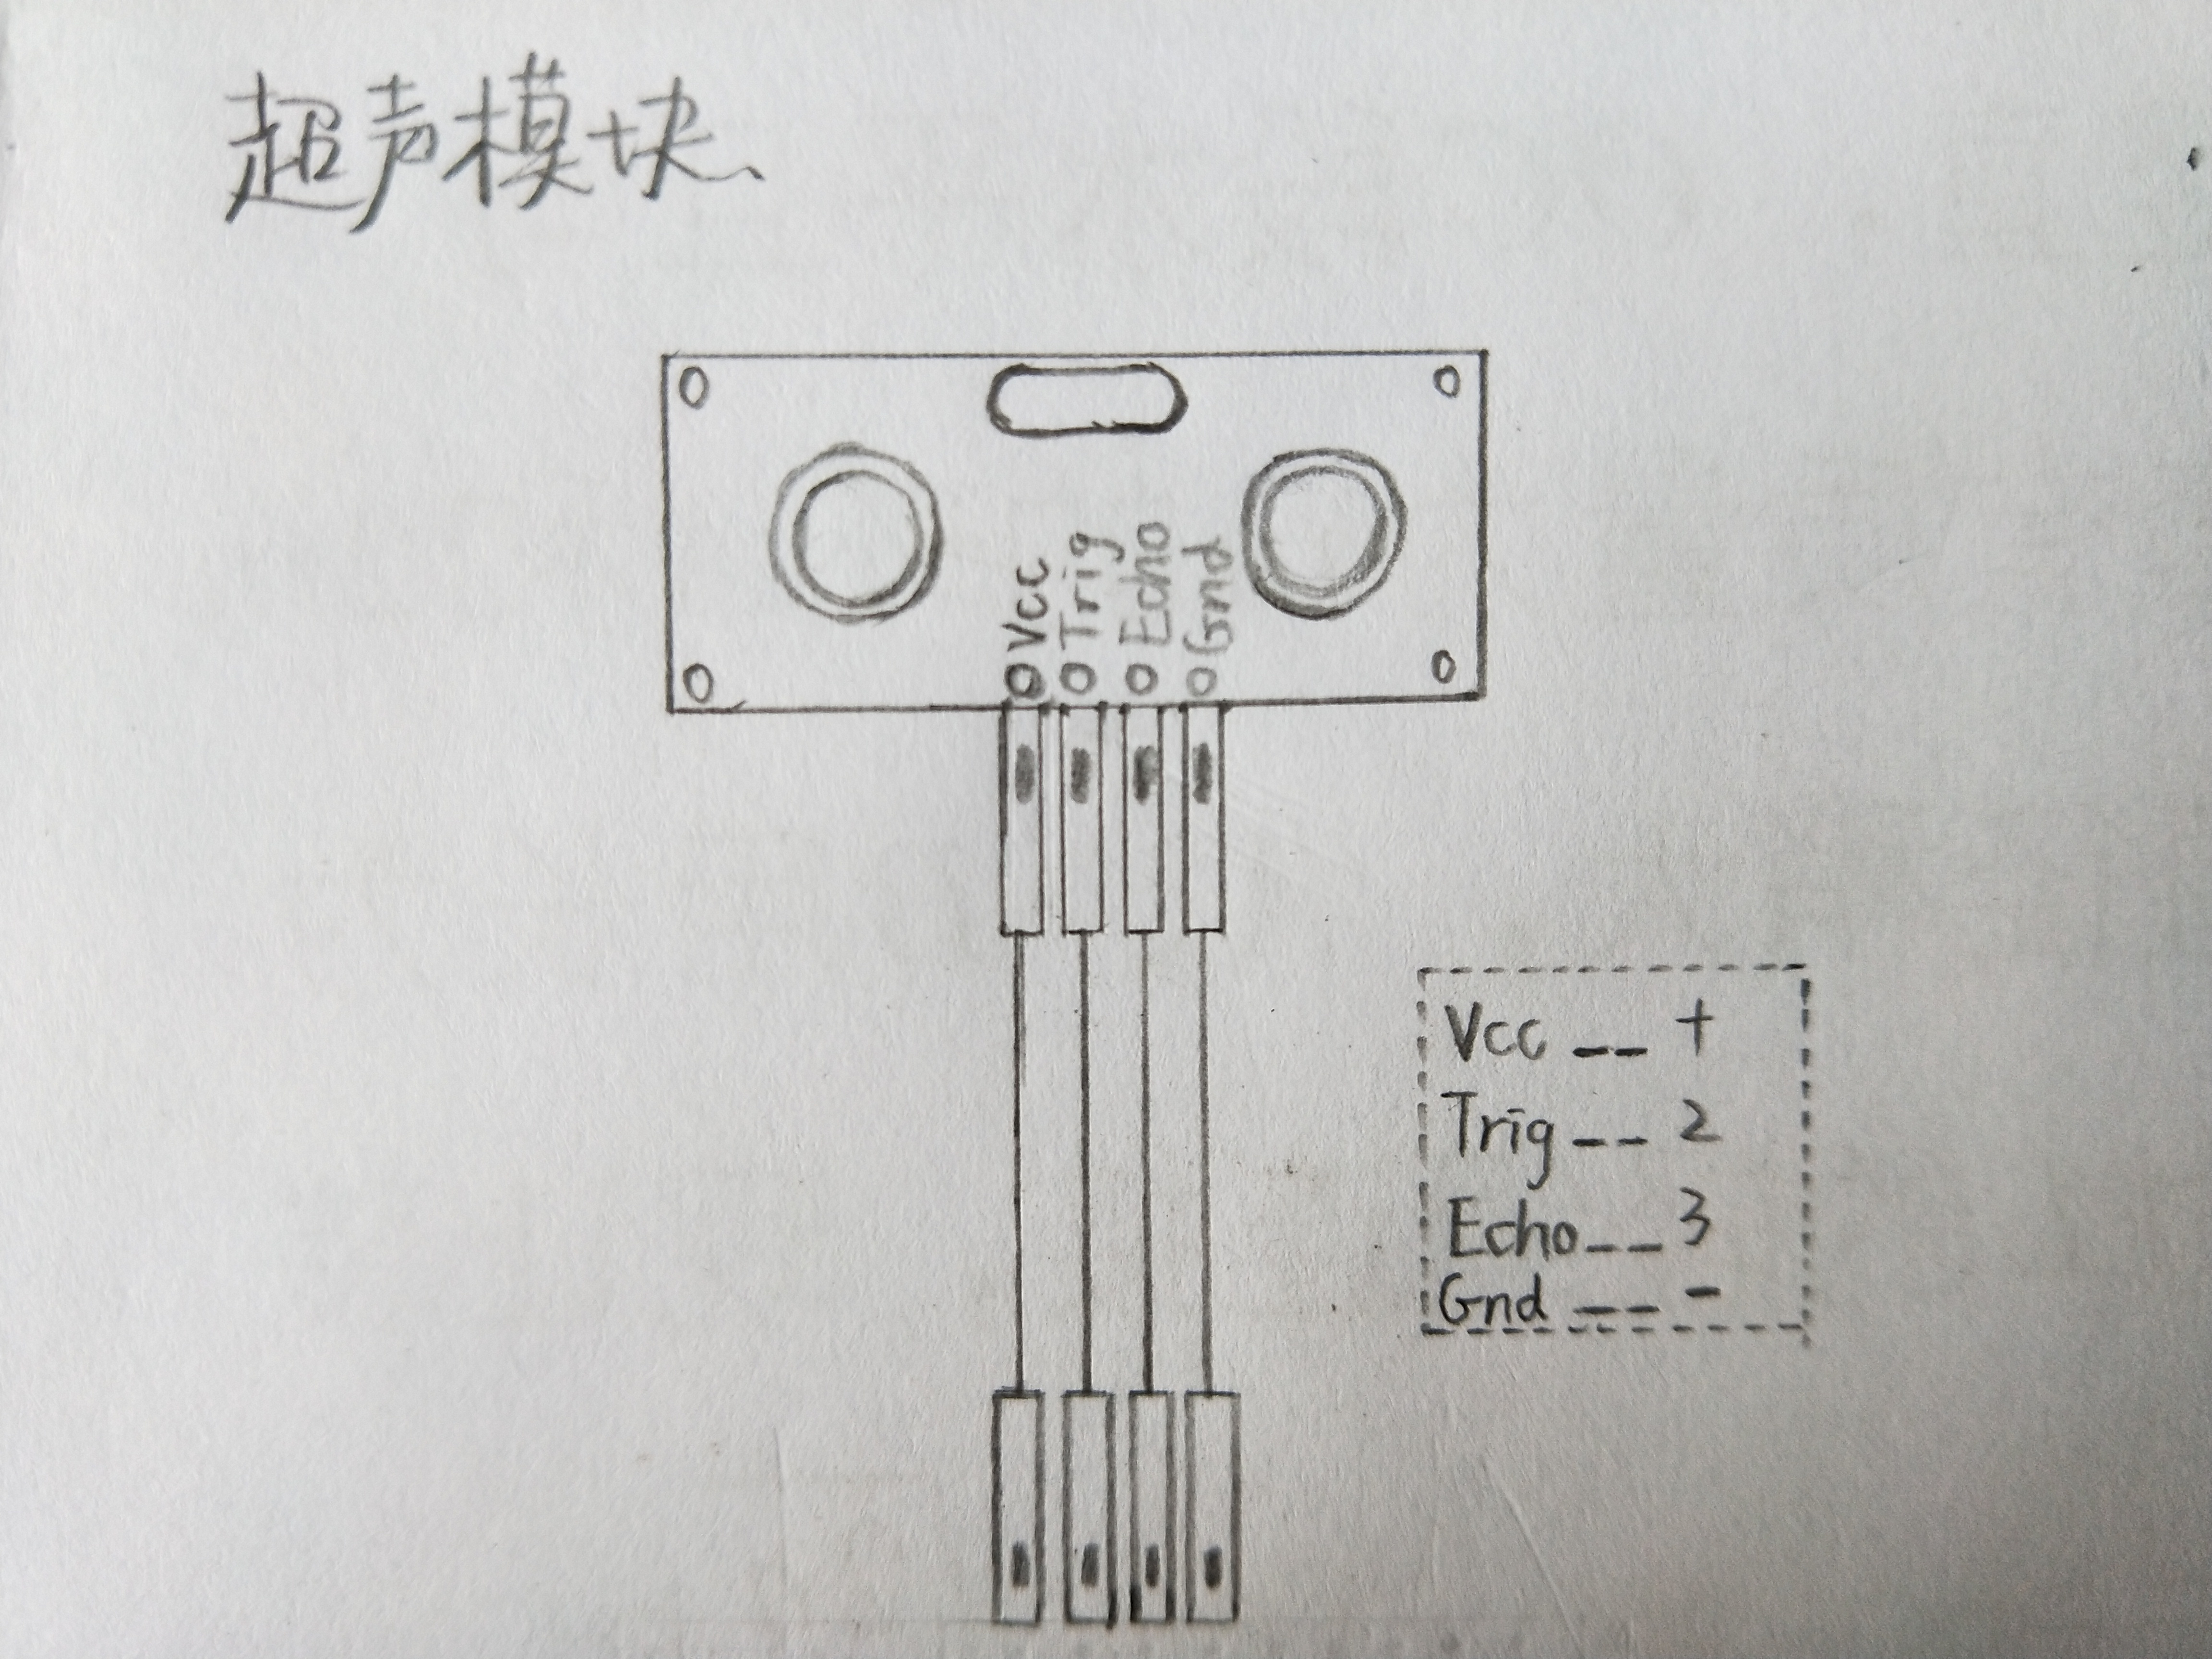 超声模块
Vcc
Trig
Echo
Gnd
Vcc -- +
Trig -- 2
Echo -- 3
Gnd -- -